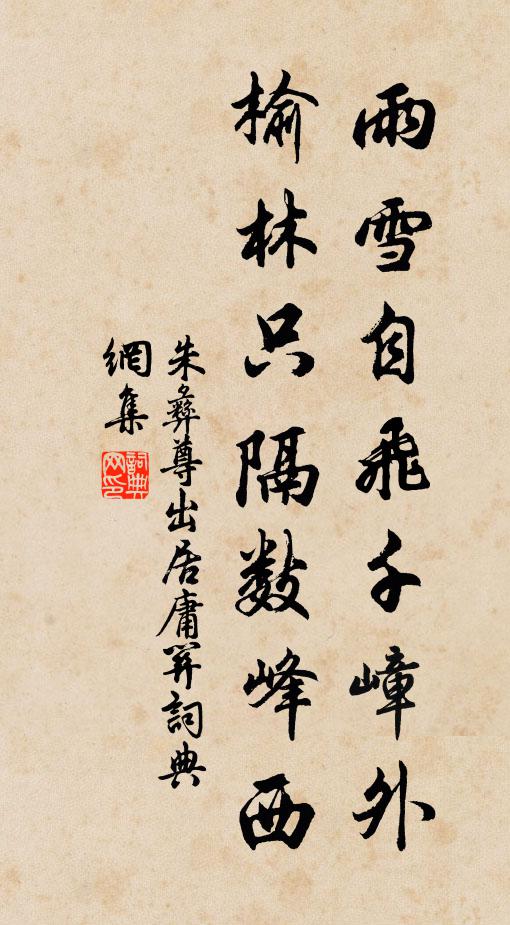 雨雪自飛千嶂外
榆林只隔數峰西
朱彝尊出居庸關詞典
網集
詞典網印